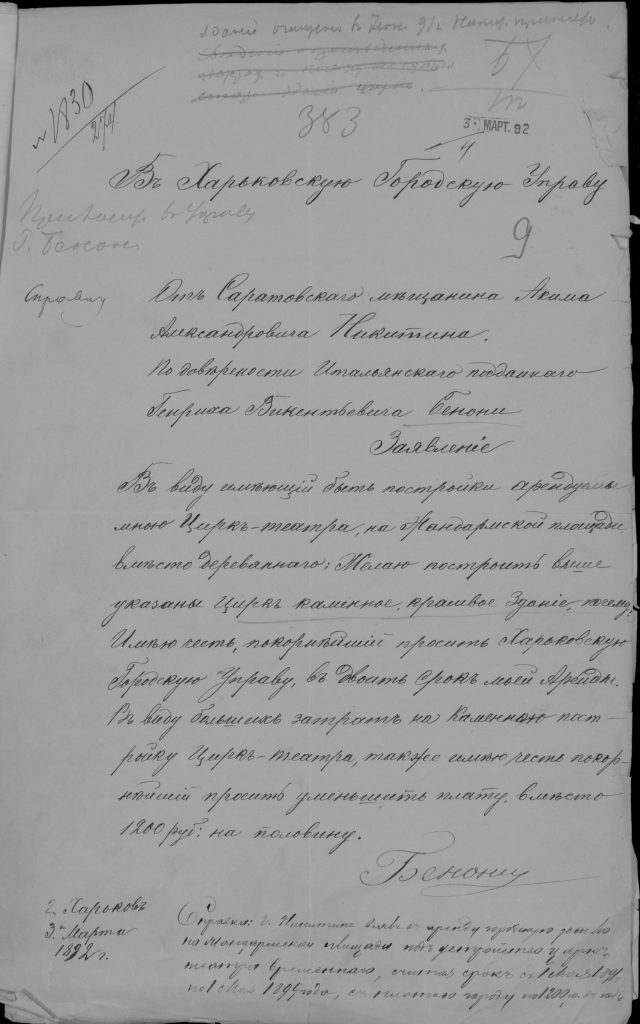 383
№ 1830
3 МАРТ. 92
4
Въ Харьковскую Городскую Управу
9
Г. Бенони
Справку
Отъ Саратовскаго мѣщанина Акима
Александровича Никитина.
По довѣрености Итальянскаго подданнаго
Генриха Викентьевича Бенони
Заявленіе
Въ виду имѣющій быть постройки арендуемы
мною Циркъ-театра, на Жандармской площади,
вмѣсто деревяннаго; Желаю построить выше
указаны Циркъ каменное, красивое Зданіе, почему
Имѣю честь, покорнѣйшій просить Харьковскую
Городскую Управу, въ двоить срокъ моей Аренды.
Въ виду большихъ затратъ на Каменною пост-
ройку Циркъ-театра, также имѣю честь покор-
нѣйшій просить уменьшить плату, вмѣсто
1200 руб: на половину.
Бенони
г. Харьковъ
3го Марта
1892 г.
Справка: г. Никитин въ аренду городскую землю
на Жандармской площади подъ устройство цирк-
театра временнаго, считая срокъ съ 1 Мая 1891
по 1 Мая 189 года, съ платою городу по 1200 руб.